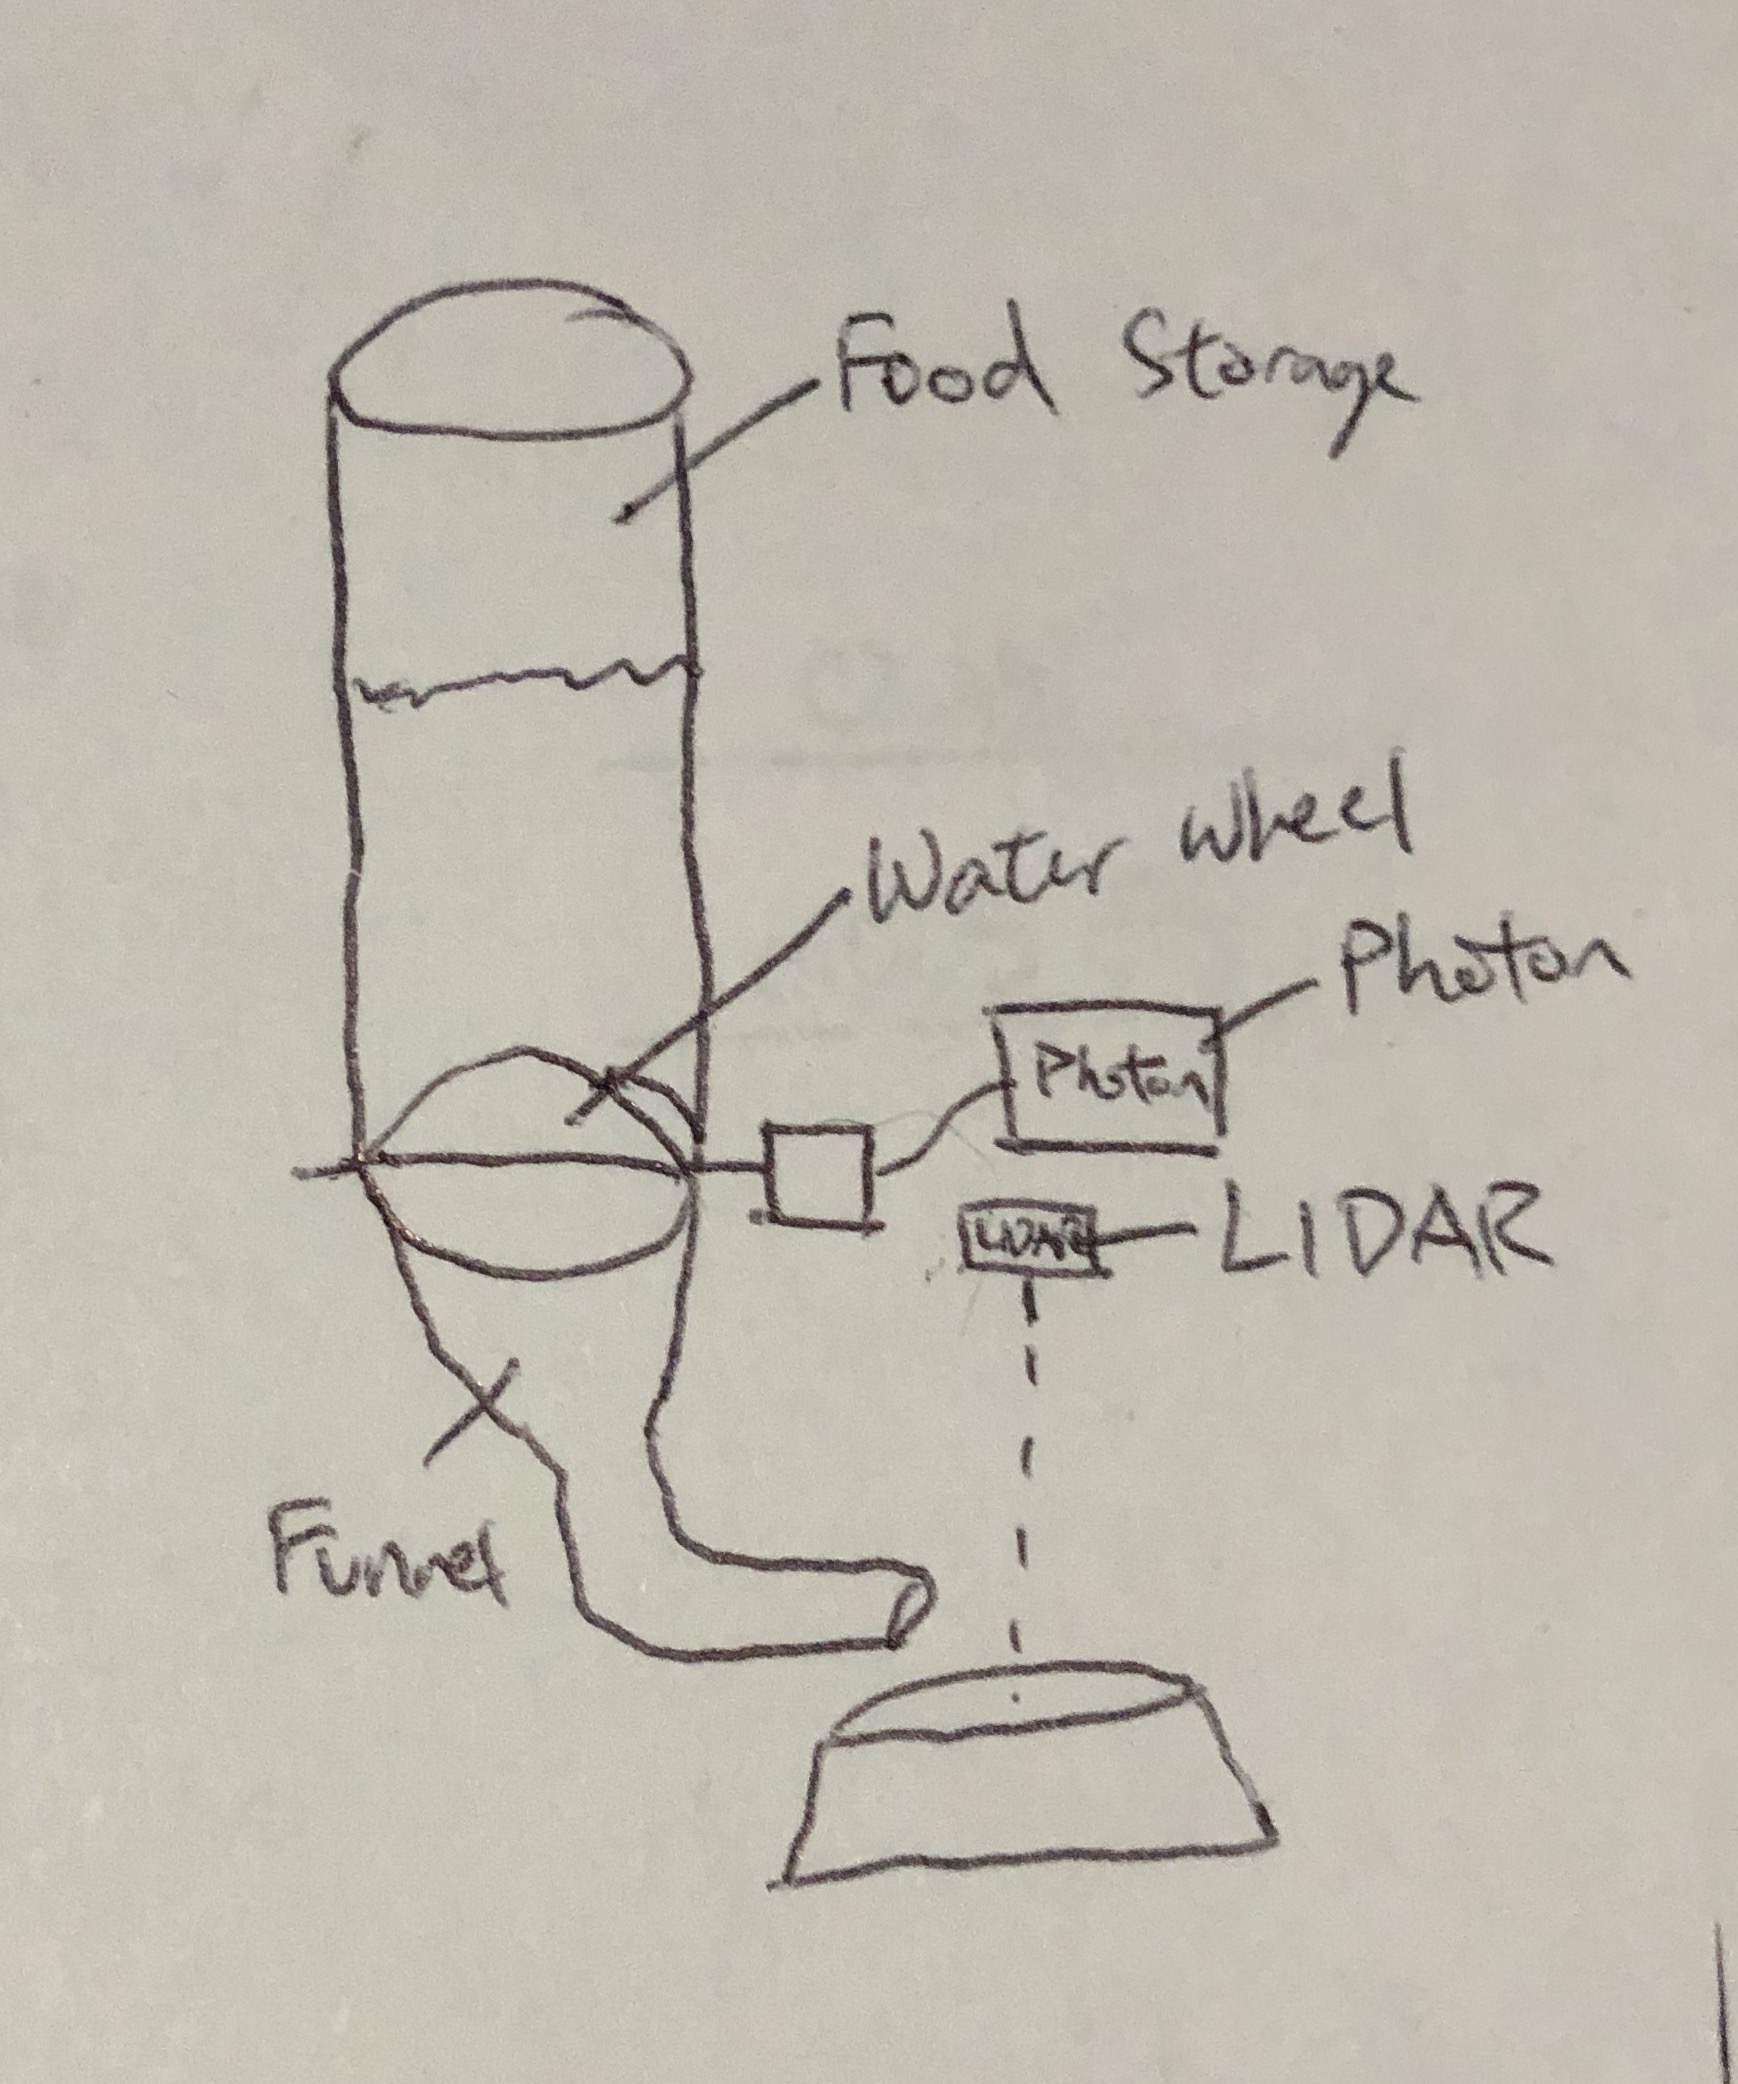 Food Storage
Water wheel
Photon
Photon
LIDAR
LIDAR
Funnel